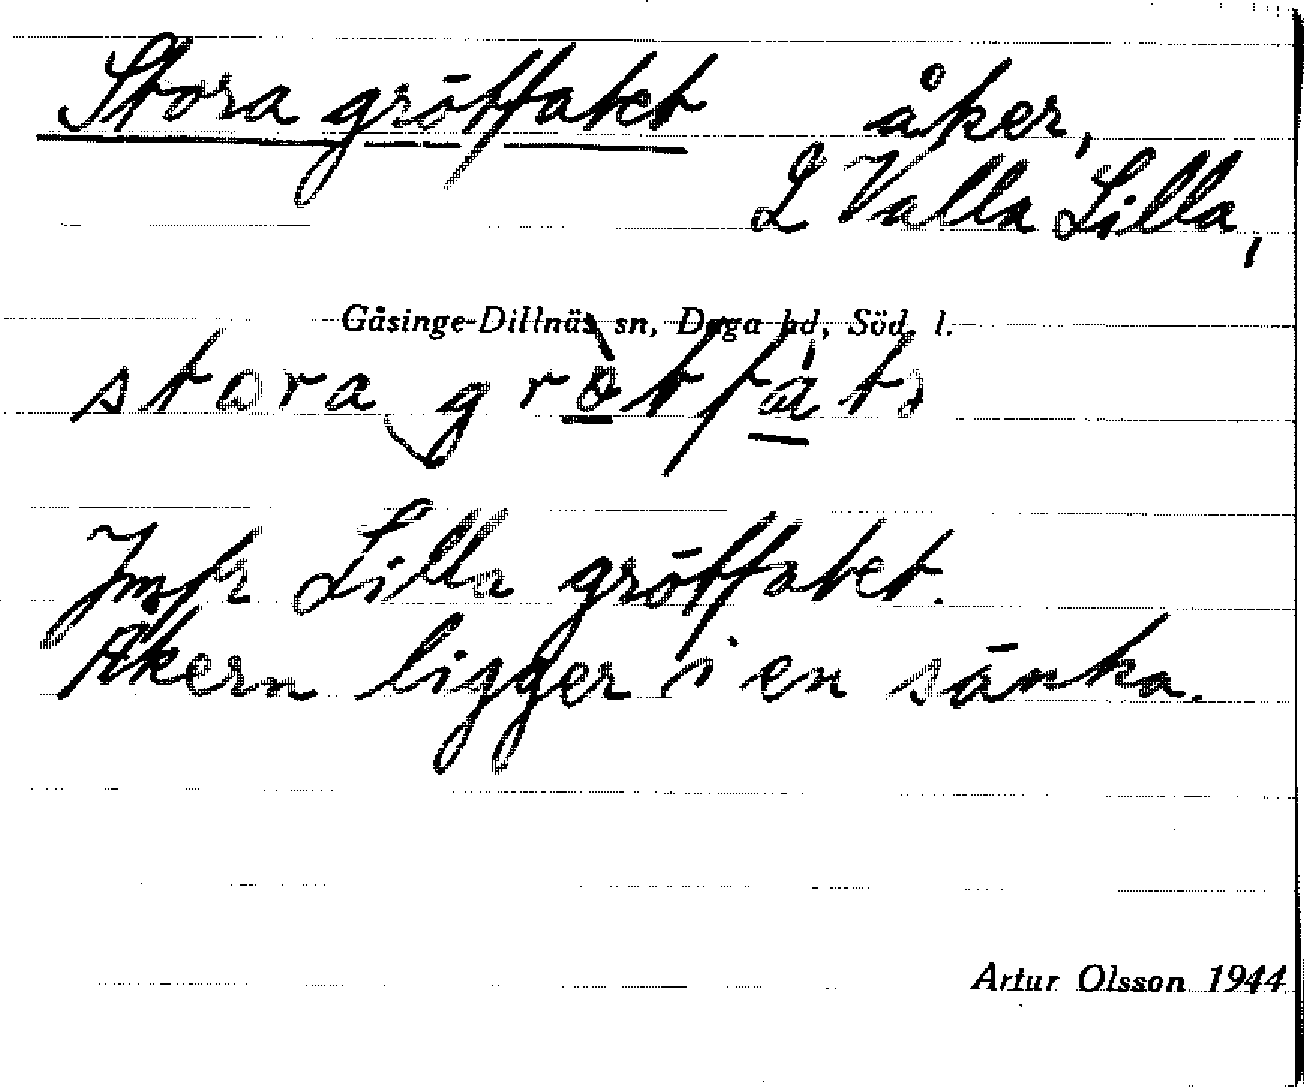 Stora grötfatet åker,
L Valla Lilla,
Gåsinge-Dillnäs sn, Daga hd, Söd. l.
stora grötfat
Jmfr Lilla grötfatet.
Åkern ligger i en sänka.
Artur Olsson 1944